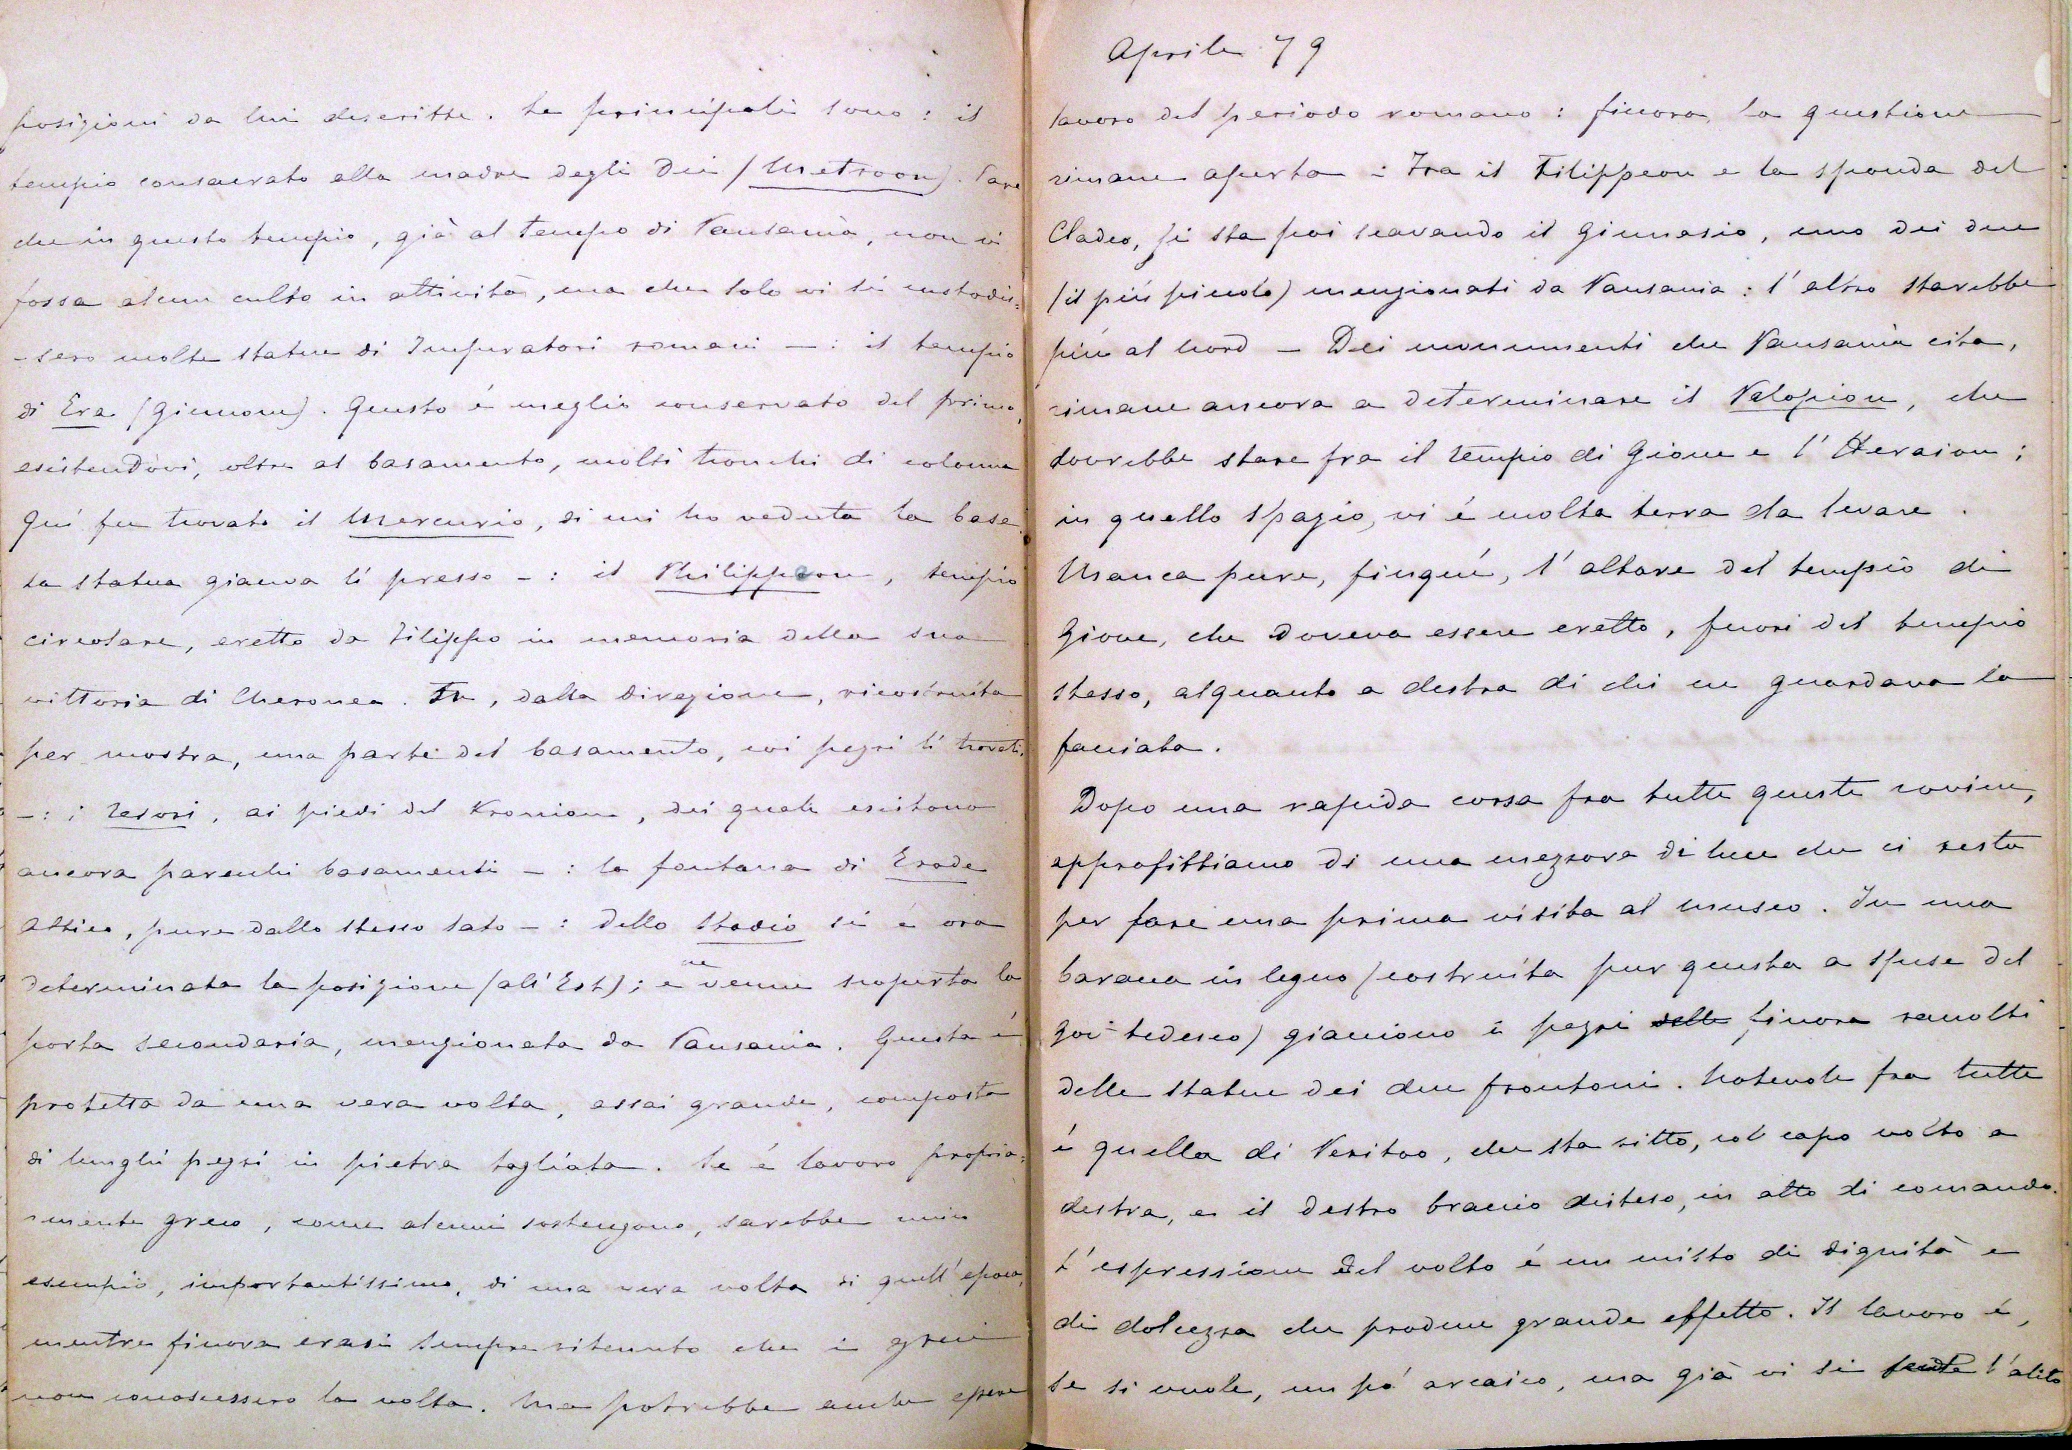 posizioni da lui descritte. Le principali sono: il
tempio consacrato alla madre degli Dei (Metroon). Pare
che in questo tempio, già al tempo di Pausania, non vi
fosse alcun culto in attività, ma che solo vi si custodis=
-sero molte statue di Imperatori romani —: il tempio
di Era (Giunone). Questo é meglio conservato del primo,
esistendovi, oltre al basamento, molti tronchi di colonne
Qui fu trovato il Mercurio, di cui ho veduta la base.
La statua giaceva lí presso —: il Philippeon, tempio
circolare, eretto da Filippo in memoria della sua
vittoria di Cheronea. Fu, dalla direzione, ricostruita
per mostra, una parte del basamento, coi pezzi lí trovati.
—: i Tesori, ai piedi del Kronion, dei quali esistono
ancora parecchi basamenti —: la fontana di Erode
Attico, pure dallo stesso lato —: dello Stadio si é ora
determinata la posizione (all'Est); e ne venne scoperta la
porta secondaria, menzionata da Pausania. Questa é
protetta da una vera volta, assai grande, composta
di lunghi pezzi in pietra tagliata. Se é lavoro propria=
=mente greco, come alcuni sostengono, sarebbe unico
esempio, importantissimo, di una vera volta di quell'epoca,
mentre finora erasi sempre ritenuto che i greci
non conoscessero la volta. Ma potrebbe anche essere
Aprile 79
lavoro del periodo romano: finora la questione
rimane aperta — Fra il Filippeon e la sponda del
Cladeo, si sta poi scavando il Gimnasio, uno dei due
(il piú piccolo) menzionati da Pausania: l'altro starebbe
piú al nord — Dei monumenti che Pausania cita,
rimane ancora a determinare il Pelopion, che
dovrebbe stare fra il tempio di Giove e l'Heraion;
in quello spazio, vi é molta terra da levare.
Manca pure, finquí, l'altare del tempio di
Giove, che doveva essere eretto, fuori del tempio
stesso, alquanto a destra di chi ne guardava la
facciata.
Dopo una rapida corsa fra tutte queste rovine,
approfittiamo di una mezzora di luce che ci resta
per fare una prima visita al museo. In una
baracca in legno (costruita pur questa a spese del
Gov- tedesco) giacciono i pezzi delle finora raccolti
delle statue dei due frontoni. Notevole fra tutte
é quella di Peritoo, che sta ritto, col capo volto a
destra, e il destro braccio disteso, in atto di comando.
L'espressione del volto é un misto di dignità e
di dolcezza che produce grande effetto. Il lavoro é,
se si vuole, un pó arcaico, ma già vi si sente l'alito